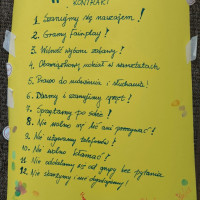 " KONTRAKT
1. Szanujmy się nawzajem!
2. Gramy fairplay!
3. Wolność wyboru zabawy!
4. Obowiązkowy udział w warsztatach
5. Prawo do mówienia i słuchania!
6. Dbamy i szanujemy sprzęt!
7. Sprzątamy po sobie!
8. Nie wolno się bić ani
9. Nie używamy telefonów!
10. Nie wolno kłamać!
11. Nie oddalamy się od grupy bez pytania
12. Nie skarżymy i nie